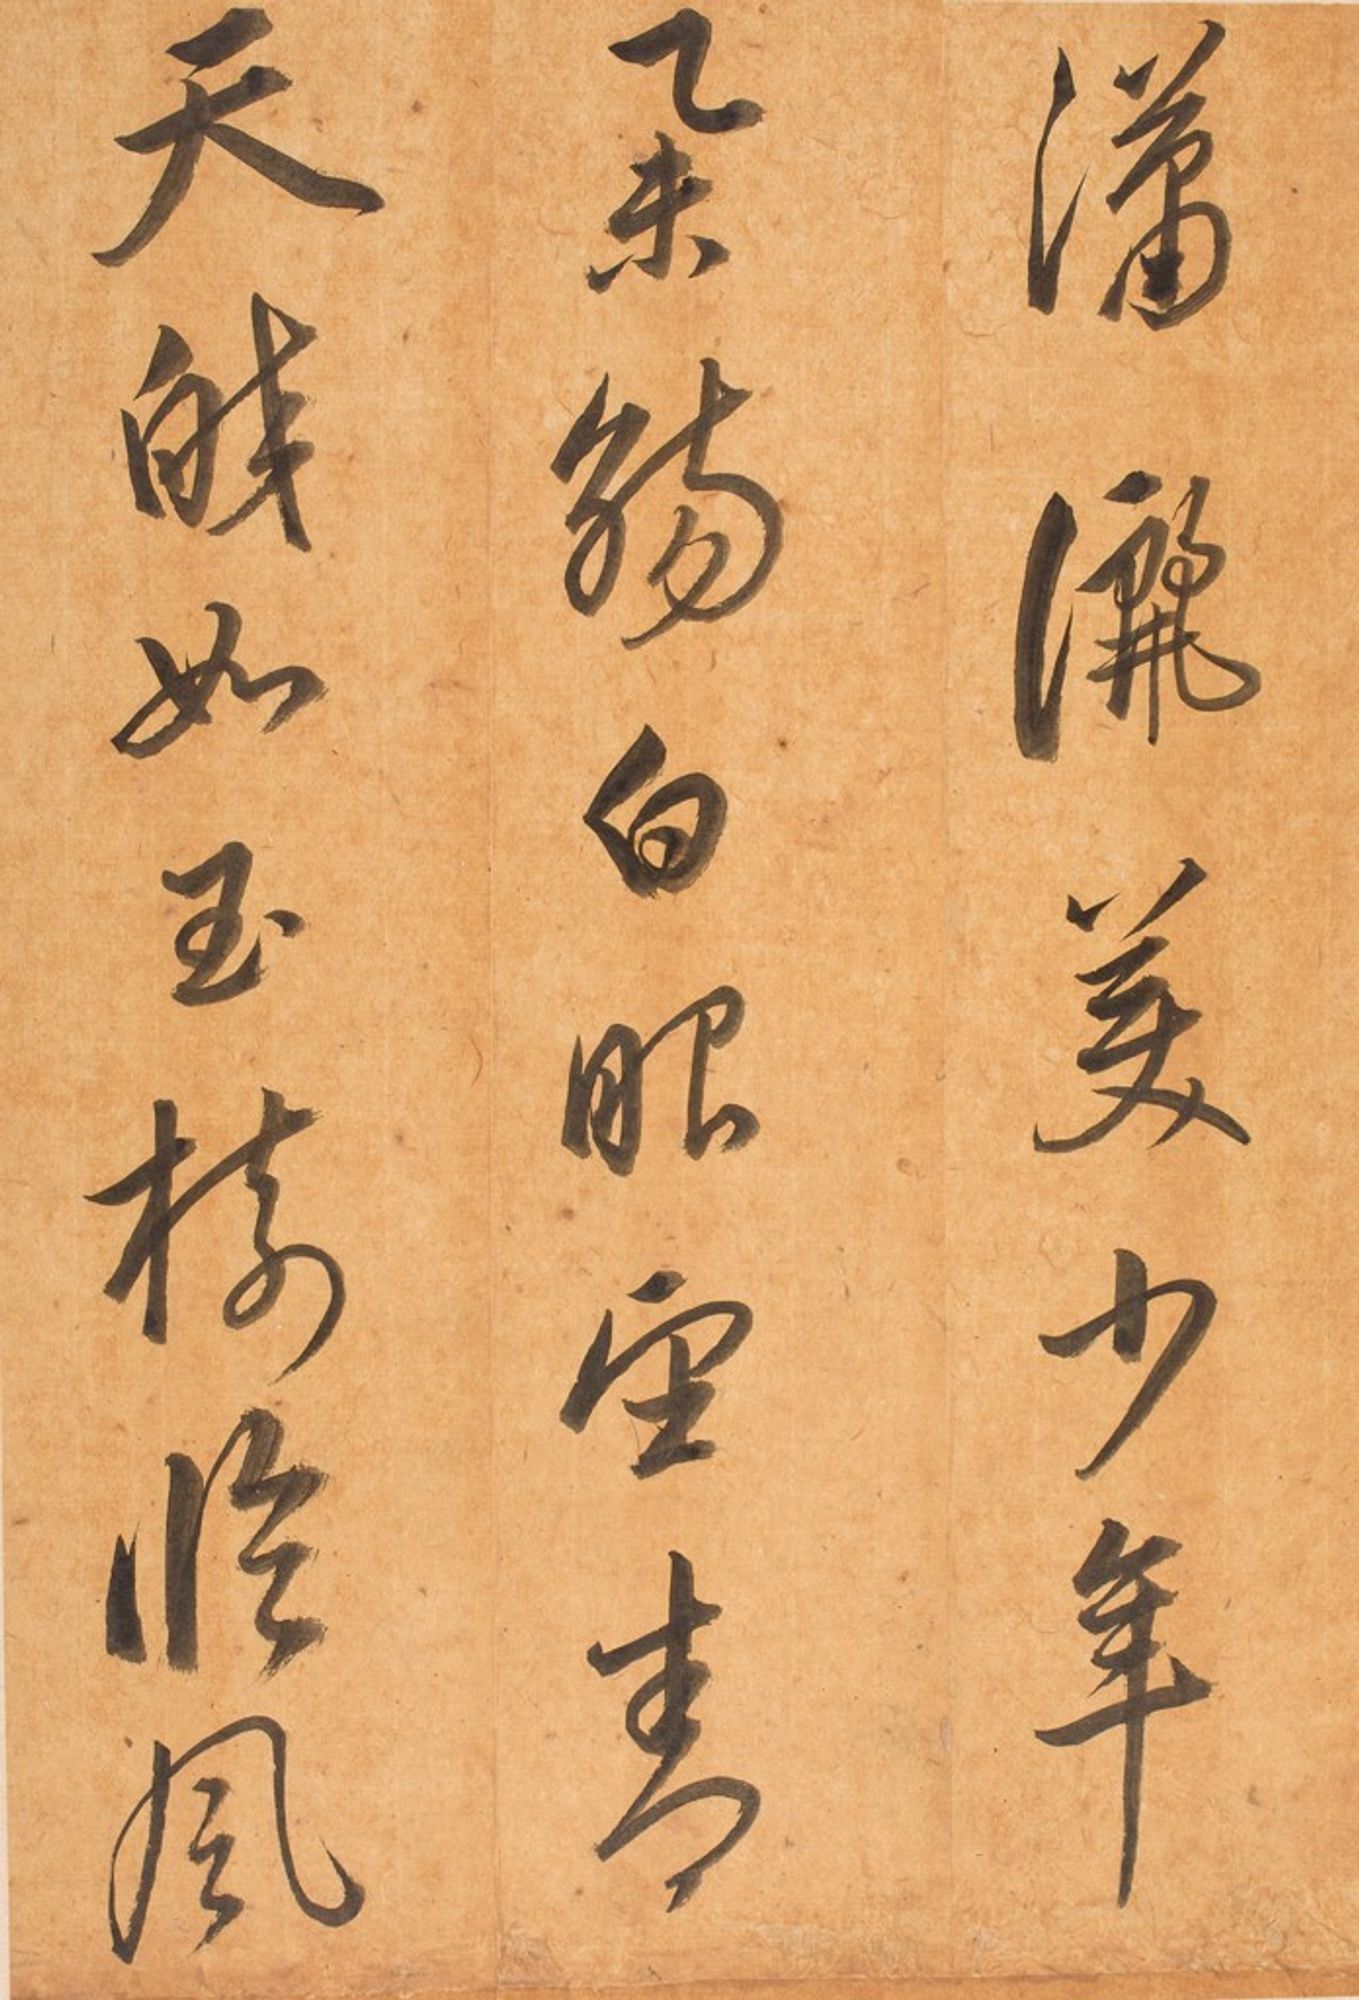 瀟灑美少年
舉觴白眼望青
天皎如玉樹臨風